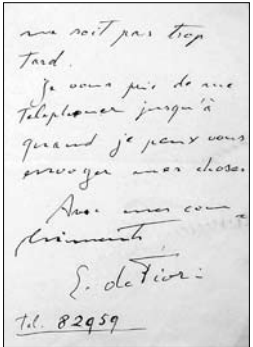 ne soit pas trop
tard.
Je vous prie de me
telephoner jusqu'à
quand je peux vous
envoyer mes choses
Avec mes com
pliments
E. de Fiori
Tel. 82959